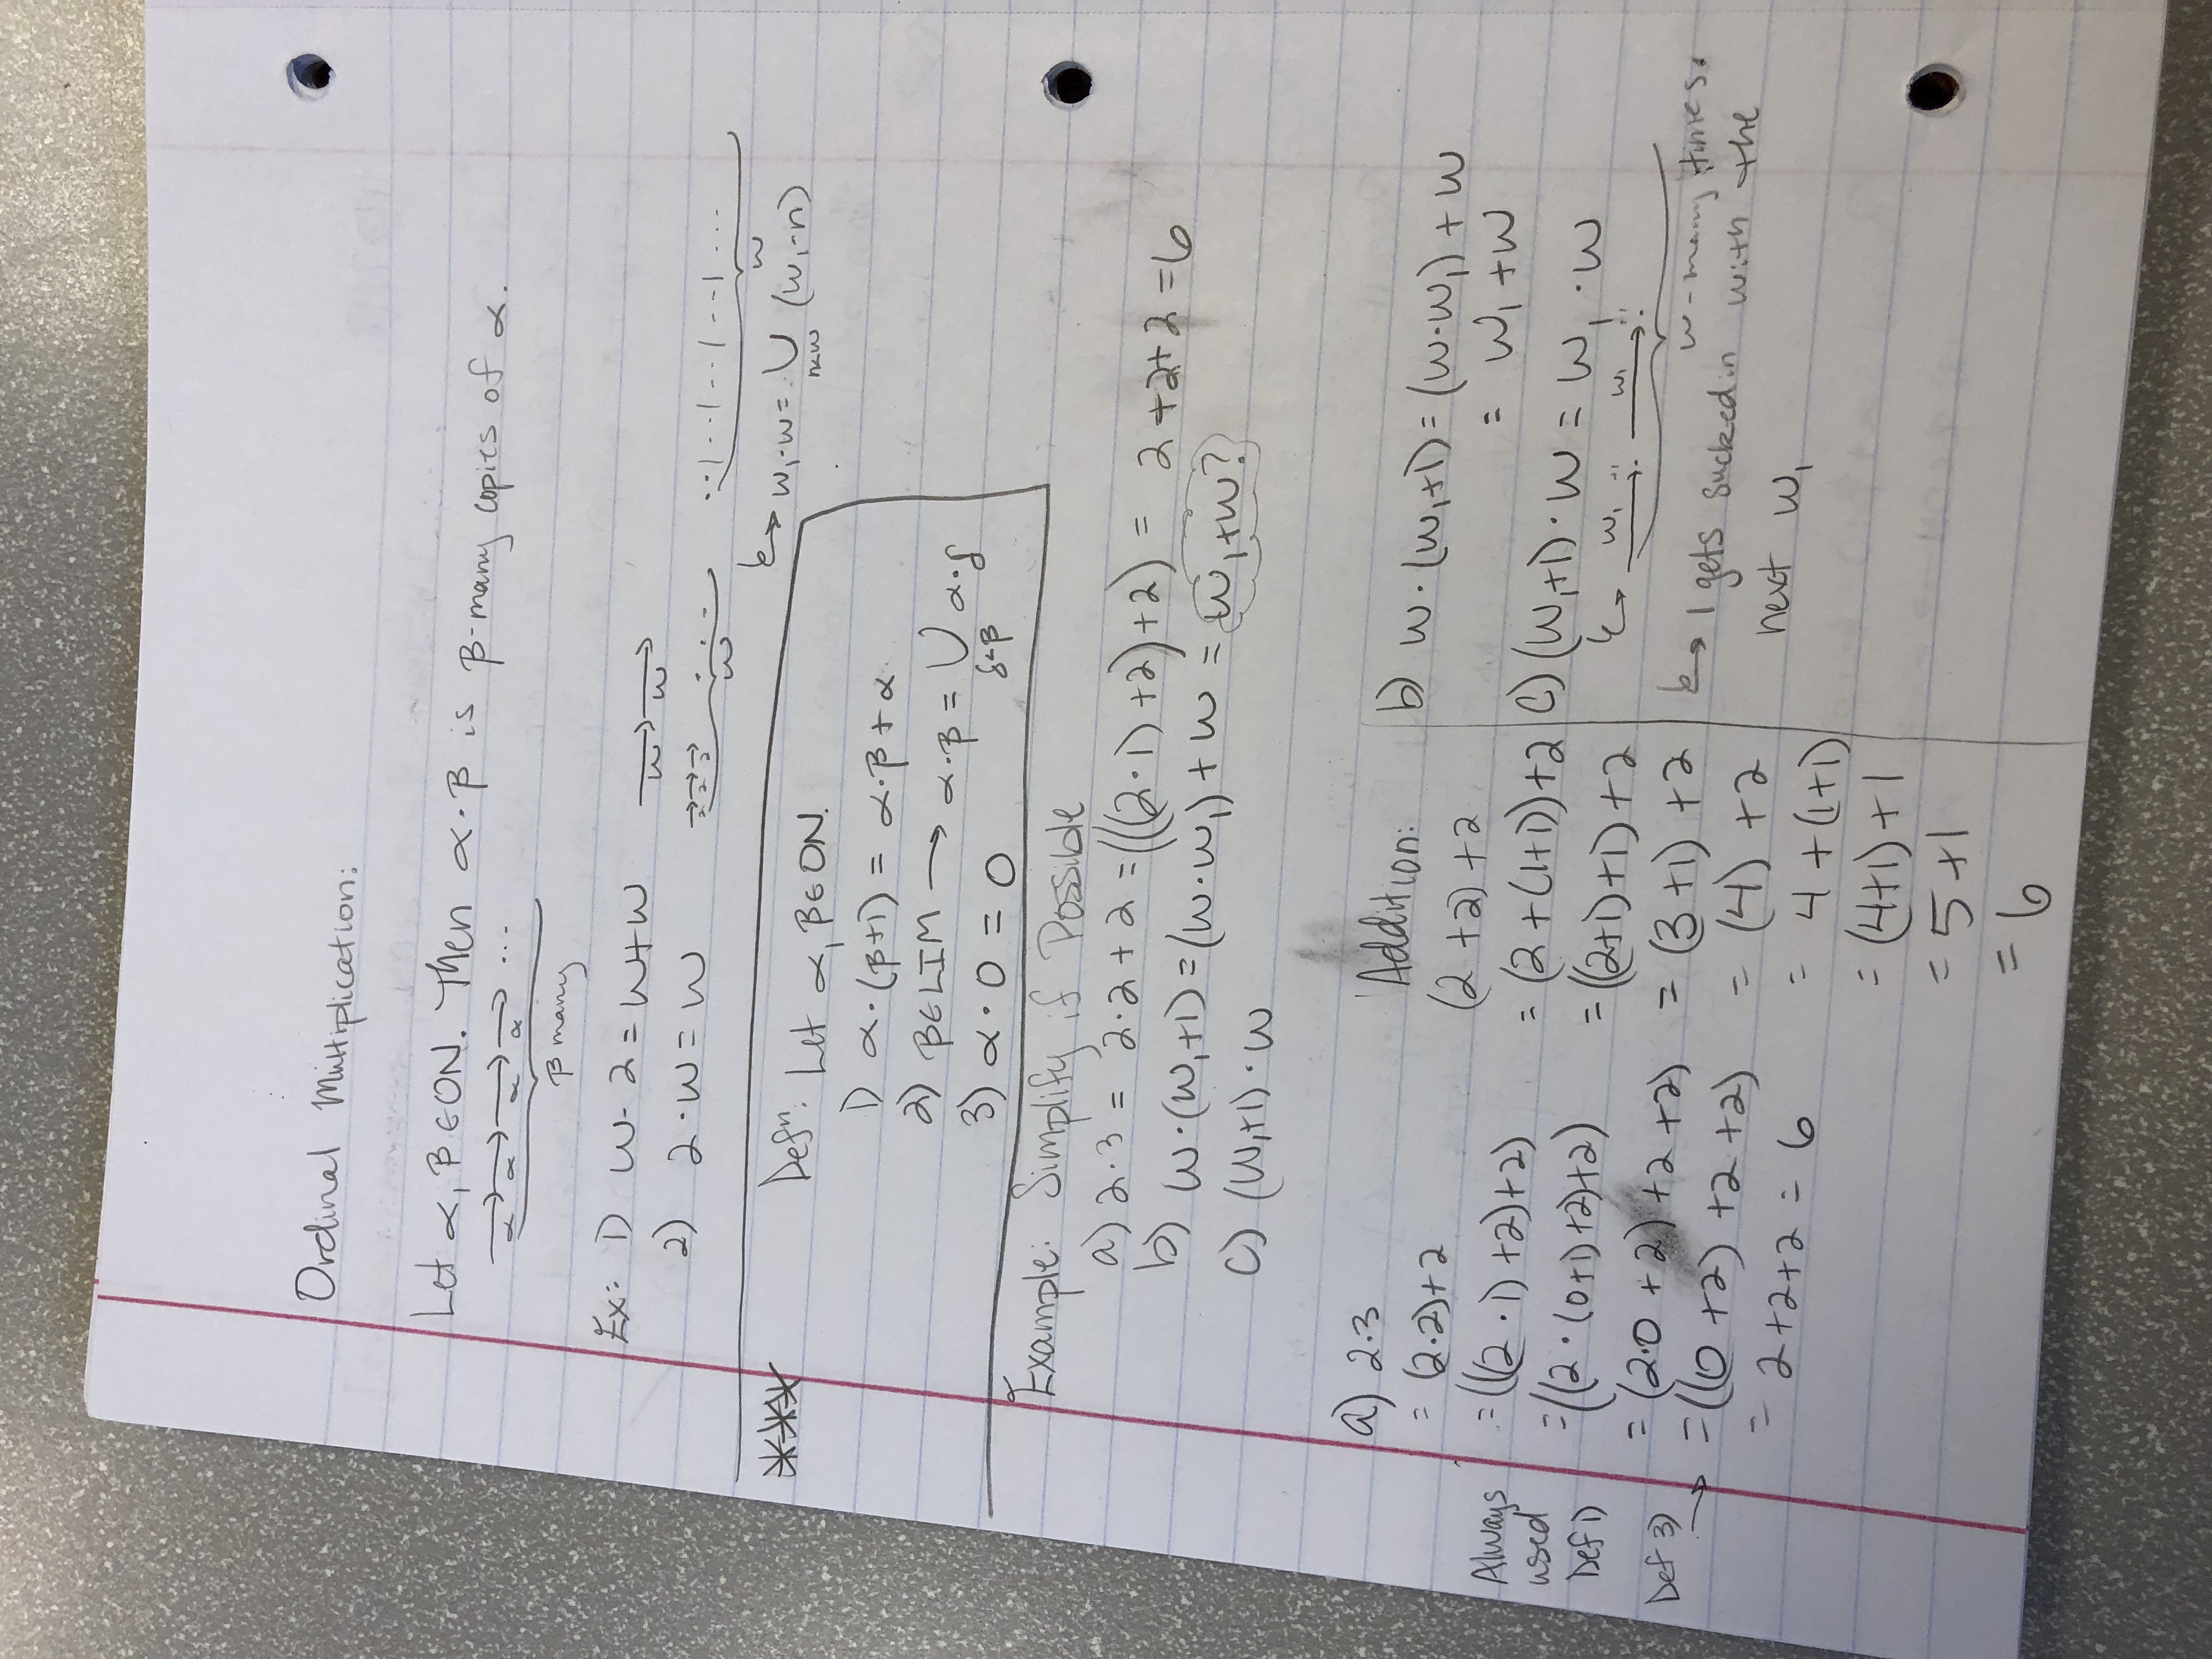 Ordinal Multiplication:
Let α, β ∈ ON. Then α · β is β-many copies of α.
α α α α ...
β many
Ex: 1) ω · 2 = ω+ω ω ω
2) 2 · ω = ω 2 2 2 ... ω ..|..|..|..|... ω
↳ ω₁·ω = ⋃ (ω₁·n)
n<ω
*** Defⁿ: Let α, β ∈ ON.
1) α · (β+1) = α·β + α
2) β ∈ LIM → α·β = ⋃ α·δ
δ<β
3) α · 0 = 0
Example: Simplify if Possible
a) 2·3 = 2·2 + 2 = (((2·1) +2) +2) = 2+2+2 = 6
b) ω·(ω₁+1) = (ω·ω₁) + ω = ω₁+ω?
c) (ω₁+1) · ω
a) 2·3
= (2·2)+2
= (((2·1) +2)+2)
= ((2·(0+1)+2)+2)
= (2·0 +2) +2 +2)
= ((0 +2) +2 +2)
= 2+2+2 = 6
Always
used
Def 1)
Def 3) →
Addition:
(2 +2) +2
= (2 + (1+1)) +2
= ((2+1)+1) +2
= (3+1) +2
= (4) +2
= 4 + (1+1)
= (4+1) +1
= 5 +1
= 6
b) ω·(ω₁+1) = (ω·ω₁) + ω
= ω₁ + ω
c) (ω₁+1) · ω = ω₁ · ω
↳ ω₁ ω₁
ω-many times.
↳ 1 gets sucked in with the
next ω₁